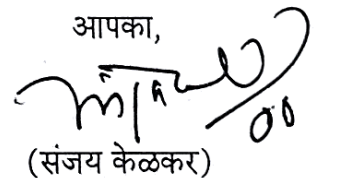 आपका,
(संजय केळकर)